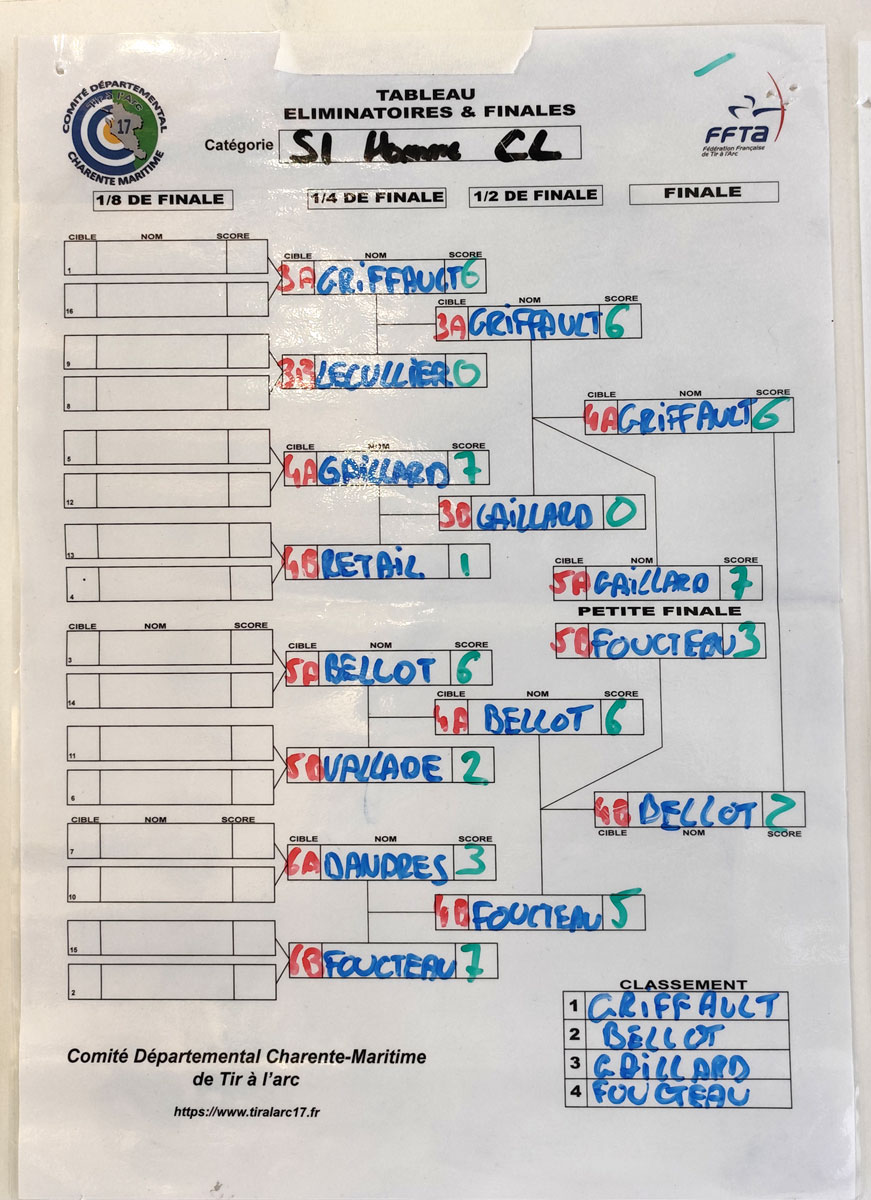 COMITÉ DÉPARTEMENTAL
TIR À L'ARC
17
CHARENTE MARITIME
TABLEAU
ELIMINATOIRES & FINALES
Catégorie S1 Homme CL
FFTA
Fédération Française
de Tir à l'Arc
1/8 DE FINALE 1/4 DE FINALE 1/2 DE FINALE FINALE
CIBLE NOM SCORE
1
16
9
8
5
12
13
4
CIBLE NOM SCORE
3
14
11
6
CIBLE NOM SCORE
7
10
15
2
CIBLE NOM SCORE
3A GRIFFAULT 6
3B LECULLIER 0
CIBLE NOM SCORE
4A GAILLARD 7
4B RETAIL 1
CIBLE NOM SCORE
5A BELLOT 6
5B VALLADE 2
CIBLE NOM SCORE
6A DANDRES 3
6B FOUCTEAU 7
CIBLE NOM SCORE
3A GRIFFAULT 6
3B GAILLARD 0
CIBLE NOM SCORE
4A BELLOT 6
4B FOUCTEAU 5
CIBLE NOM SCORE
4A GRIFFAULT 6
CIBLE NOM SCORE
5A GAILLARD 7
PETITE FINALE
5B FOUCTEAU 3
4B BELLOT 2
CIBLE NOM SCORE
CLASSEMENT
1 GRIFFAULT
2 BELLOT
3 GAILLARD
4 FOUCTEAU
Comité Départemental Charente-Maritime
de Tir à l'arc
https://www.tiralarc17.fr